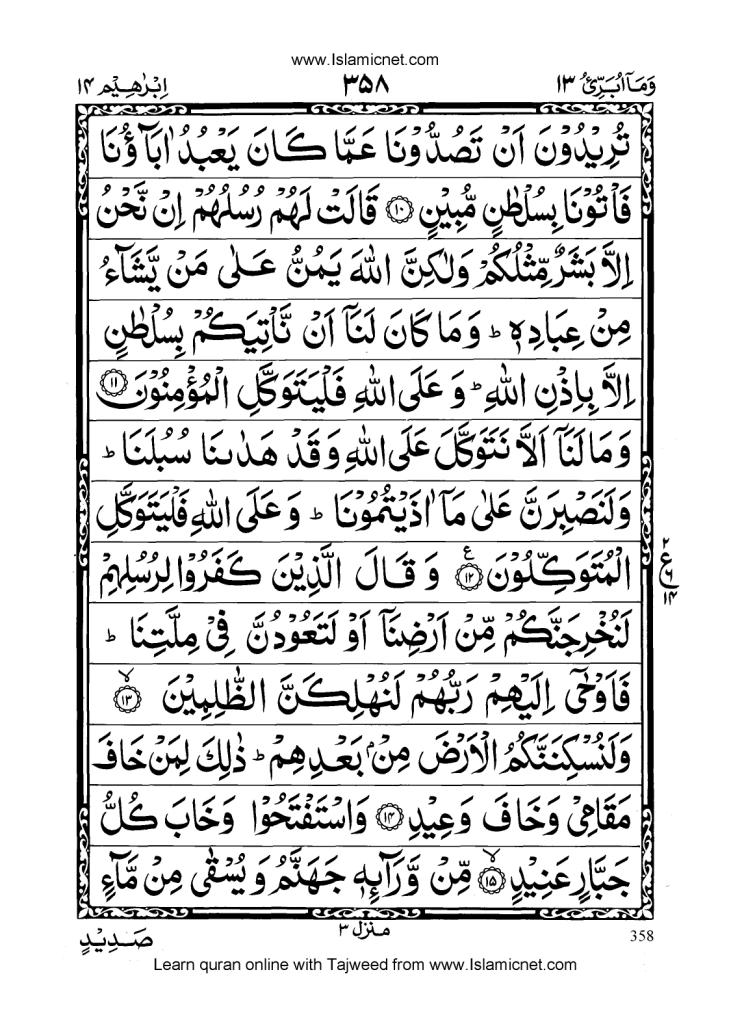 www.Islamicnet.com
وَمَاۤ اُبَرِّئُ ١٣ ٣٥٨ اِبْرٰهِيْم ١٤
تُرِيْدُوْنَ اَنْ تَصُدُّوْنَا عَمَّا كَانَ يَعْبُدُ اٰبَآؤُنَا
فَاْتُوْنَا بِسُلْطٰنٍ مُّبِيْنٍ ۝١٠ قَالَتْ لَهُمْ رُسُلُهُمْ اِنْ نَّحْنُ
اِلَّا بَشَرٌ مِّثْلُكُمْ وَلٰكِنَّ اللّٰهَ يَمُنُّ عَلٰى مَنْ يَّشَآءُ
مِنْ عِبَادِهٖ ؕ وَمَا كَانَ لَنَاۤ اَنْ نَّاْتِيَكُمْ بِسُلْطٰنٍ
اِلَّا بِاِذْنِ اللّٰهِ ؕ وَ عَلَى اللّٰهِ فَلْيَتَوَكَّلِ الْمُؤْمِنُوْنَ ۝١١
وَمَا لَنَاۤ اَلَّا نَتَوَكَّلَ عَلَى اللّٰهِ وَقَدْ هَدٰىنَا سُبُلَنَا ؕ
وَلَنَصْبِرَنَّ عَلٰى مَاۤ اٰذَيْتُمُوْنَا ؕ وَ عَلَى اللّٰهِ فَلْيَتَوَكَّلِ
الْمُتَوَكِّلُوْنَ ۝١٢ ع وَ قَالَ الَّذِيْنَ كَفَرُوْا لِرُسُلِهِمْ
٢ ع ٦ ١٤
لَنُخْرِجَنَّكُمْ مِّنْ اَرْضِنَاۤ اَوْ لَتَعُوْدُنَّ فِيْ مِلَّتِنَا ؕ
فَاَوْحٰۤى اِلَيْهِمْ رَبُّهُمْ لَنُهْلِكَنَّ الظّٰلِمِيْنَ ۝١٣ لا
وَلَنُسْكِنَنَّكُمُ الْاَرْضَ مِنْۢ بَعْدِهِمْ ؕ ذٰلِكَ لِمَنْ خَافَ
مَقَامِيْ وَخَافَ وَعِيْدِ ۝١٤ وَاسْتَفْتَحُوْا وَخَابَ كُلُّ
جَبَّارٍ عَنِيْدٍ ۝١٥ لا مِّنْ وَّرَآئِهٖ جَهَنَّمُ وَ يُسْقٰى مِنْ مَّآءٍ
صَدِيْدٍ
منزل ٣
358
Learn quran online with Tajweed from www.Islamicnet.com